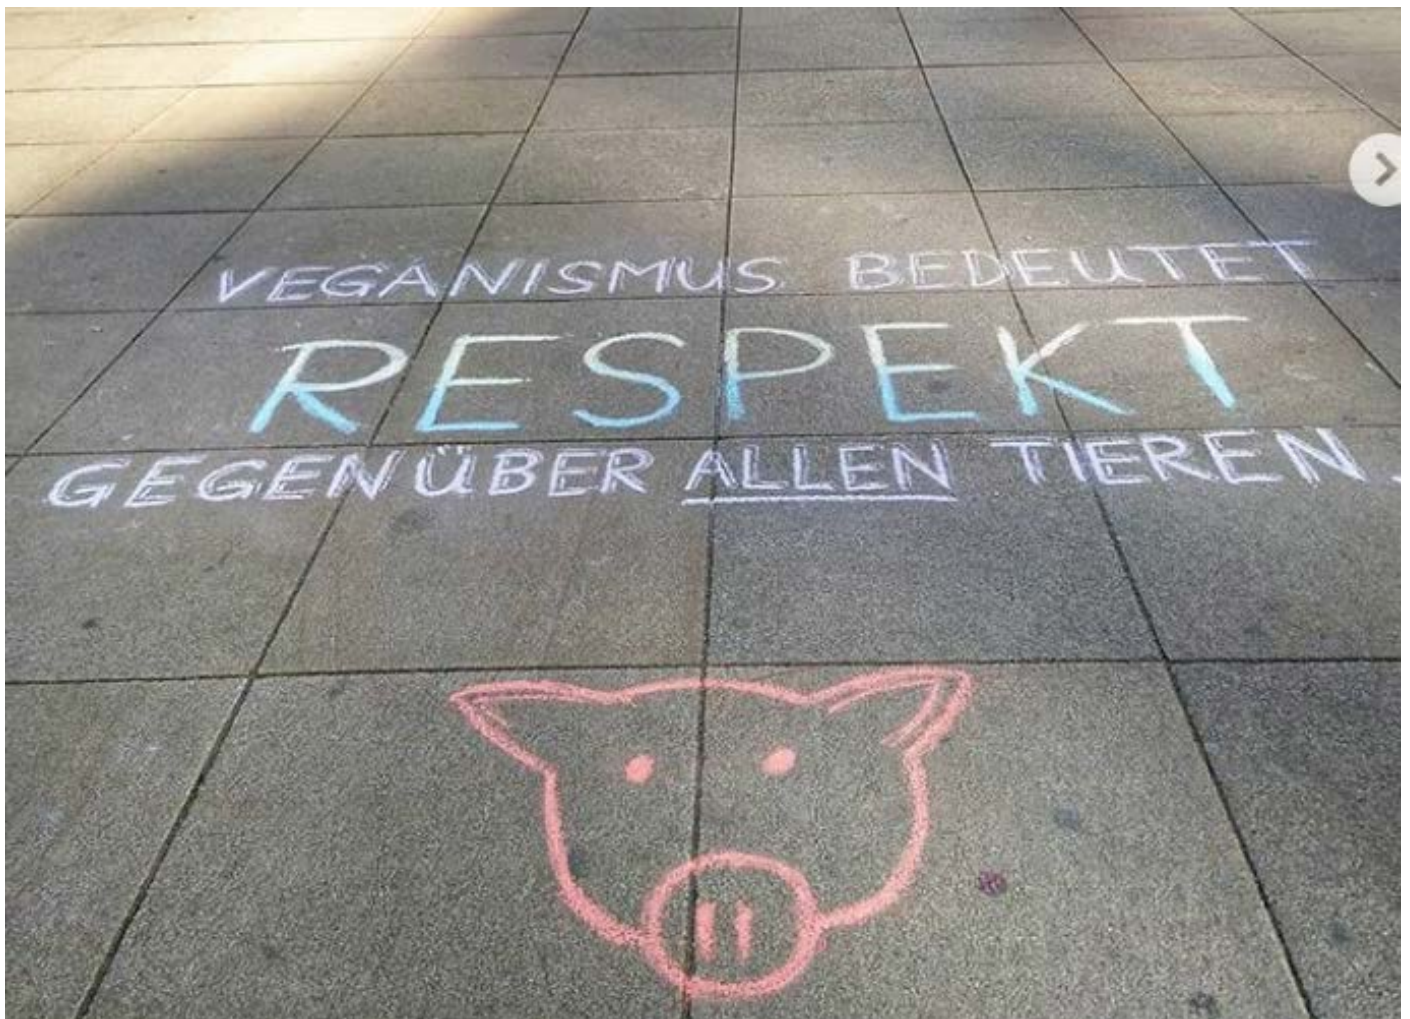 VEGANISMUS BEDEUTET
RESPEKT
GEGENÜBER ALLEN TIEREN.